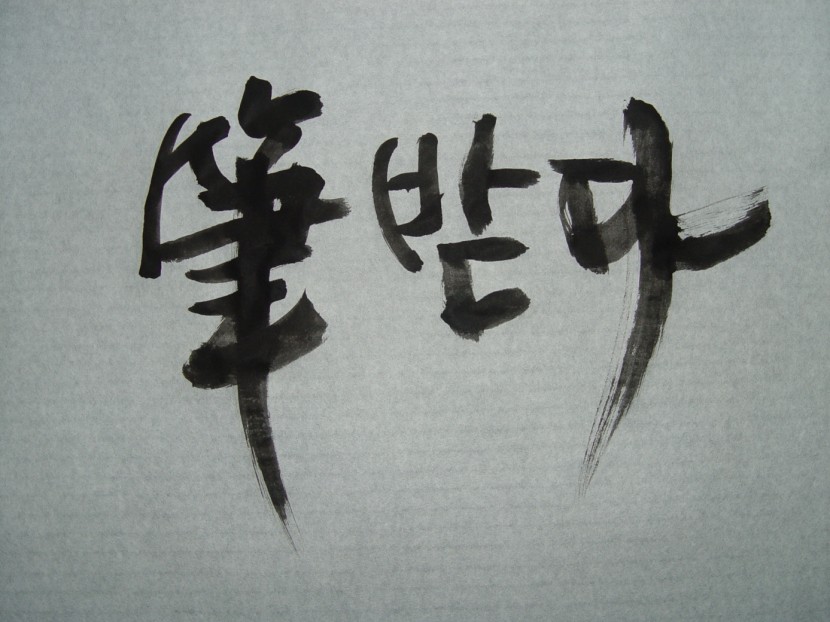 筆받다